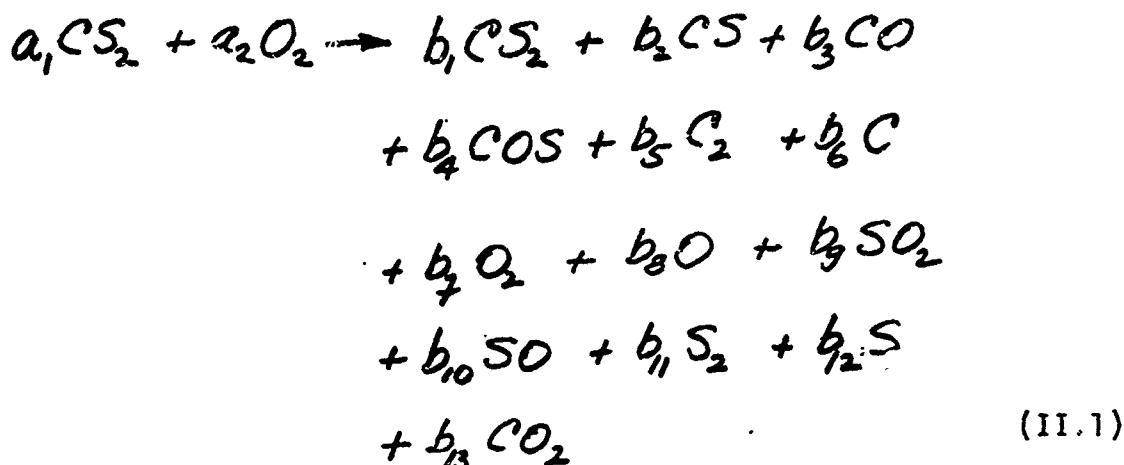 a₁CS₂ + a₂O₂ → b₁CS₂ + b₂CS + b₃CO
+ b₄COS + b₅C₂ + b₆C
+ b₇O₂ + b₈O + b₉SO₂
+ b₁₀SO + b₁₁S₂ + b₁₂S
+ b₁₃CO₂ (II.1)